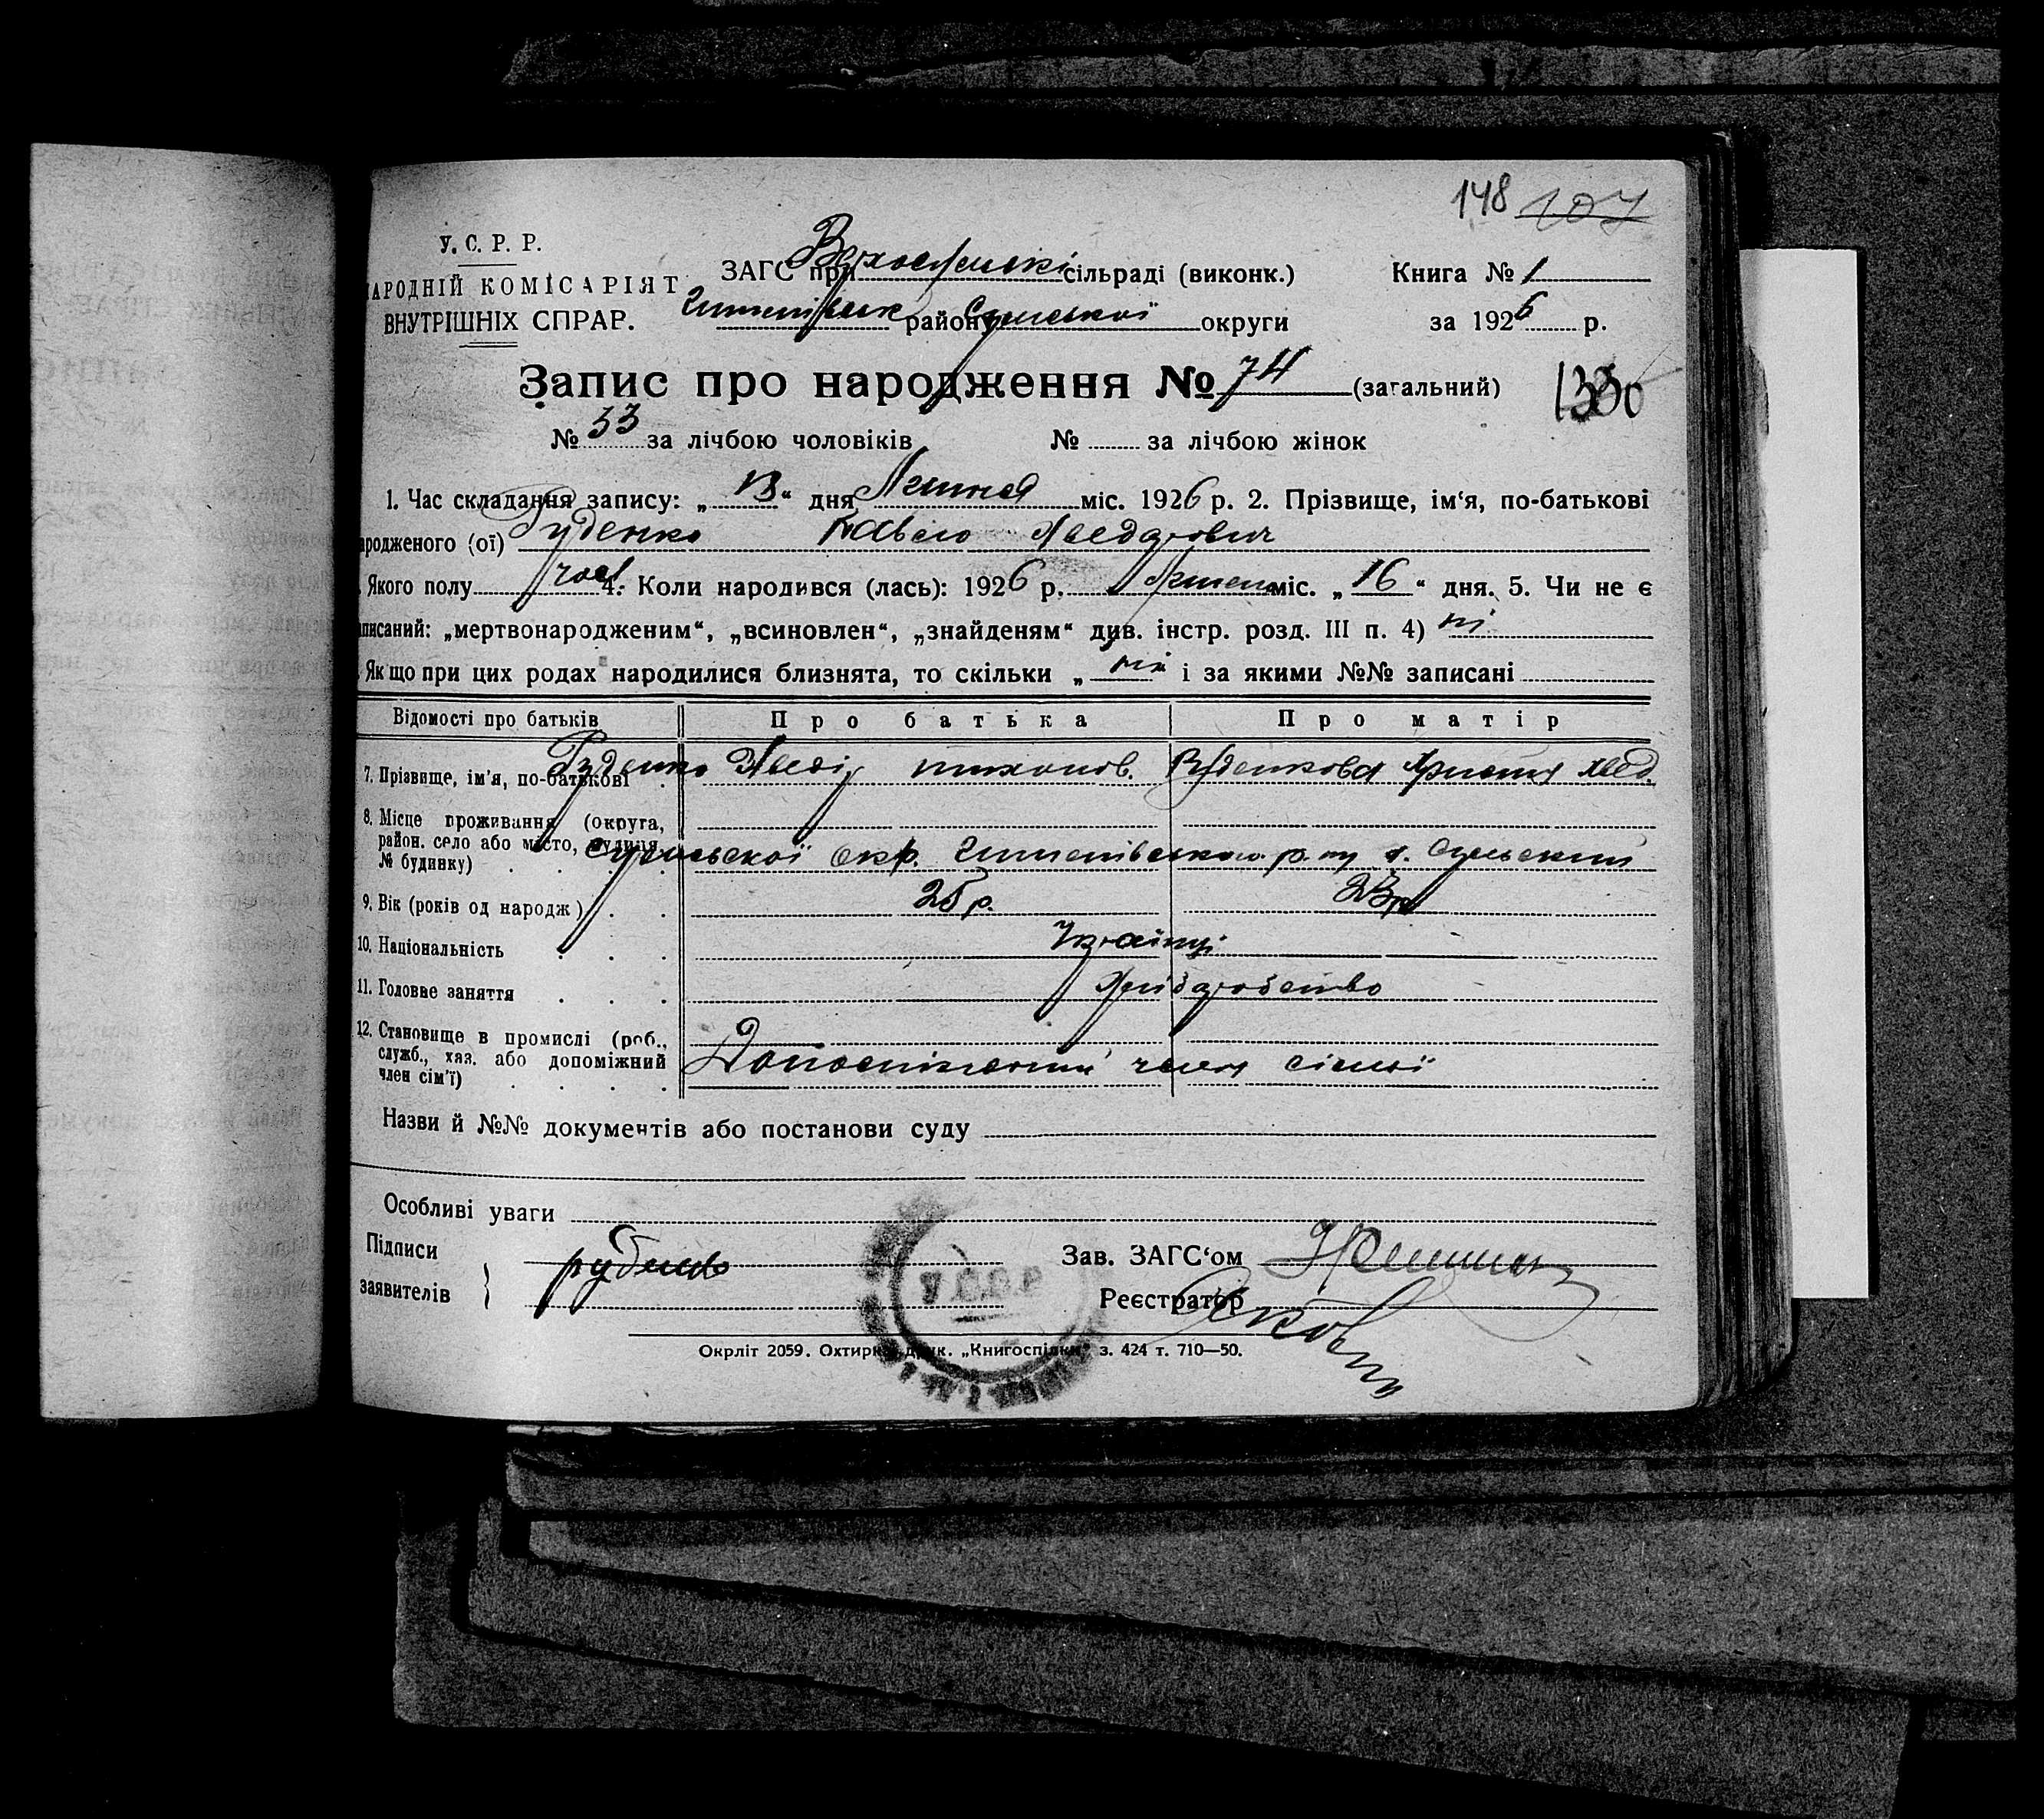 148 107
У. С. Р. Р.
НАРОДНІЙ КОМІСАРІЯТ
ВНУТРІШНІХ СПРАР.
ЗАГС при сільраді (виконк.)
району Сумської округи
Книга № 1
за 1926 р.
Запис про народження № 74 (загальний)
1330
№ 33 за лічбою чоловіків № за лічбою жінок
1. Час складання запису: „ “ дня міс. 1926 р. 2. Прізвище, ім‘я, по-батькові
народженого (ої) Руденко Павло
Якого полу чол. 4. Коли народився (лась): 1926 р. міс. „ 16 “ дня. 5. Чи не є
записаний: „мертвонародженим“, „всиновлен“, „знайденям“ див. інстр. розд. III п. 4) ні
Якщо при цих родах народилися близнята, то скільки „ ні “ і за якими №№ записані
Відомості про батьків Про батька Про матір
7. Прізвище, ім‘я, по-батькові Руденко тихонов. Руденкова Христя
8. Місце проживання (округа,
район. село або місто, вулиця,
№ будинку)
Сумської окр.
9. Вік (років од народж) 25 р. 23 р.
10. Національність Українці
11. Головне заняття Хліборобство
12. Становище в промислі (роб.,
служб., хаз. або допоміжний
член сім‘ї)
член сімьї
Назви й №№ документів або постанови суду
Особливі уваги
Підписи
заявителів
руденко
Зав. ЗАГС‘ом
Реєстратор
УСРР
Окрліт 2059. Охтирка друк. „Книгоспілки“ з. 424 т. 710—50.